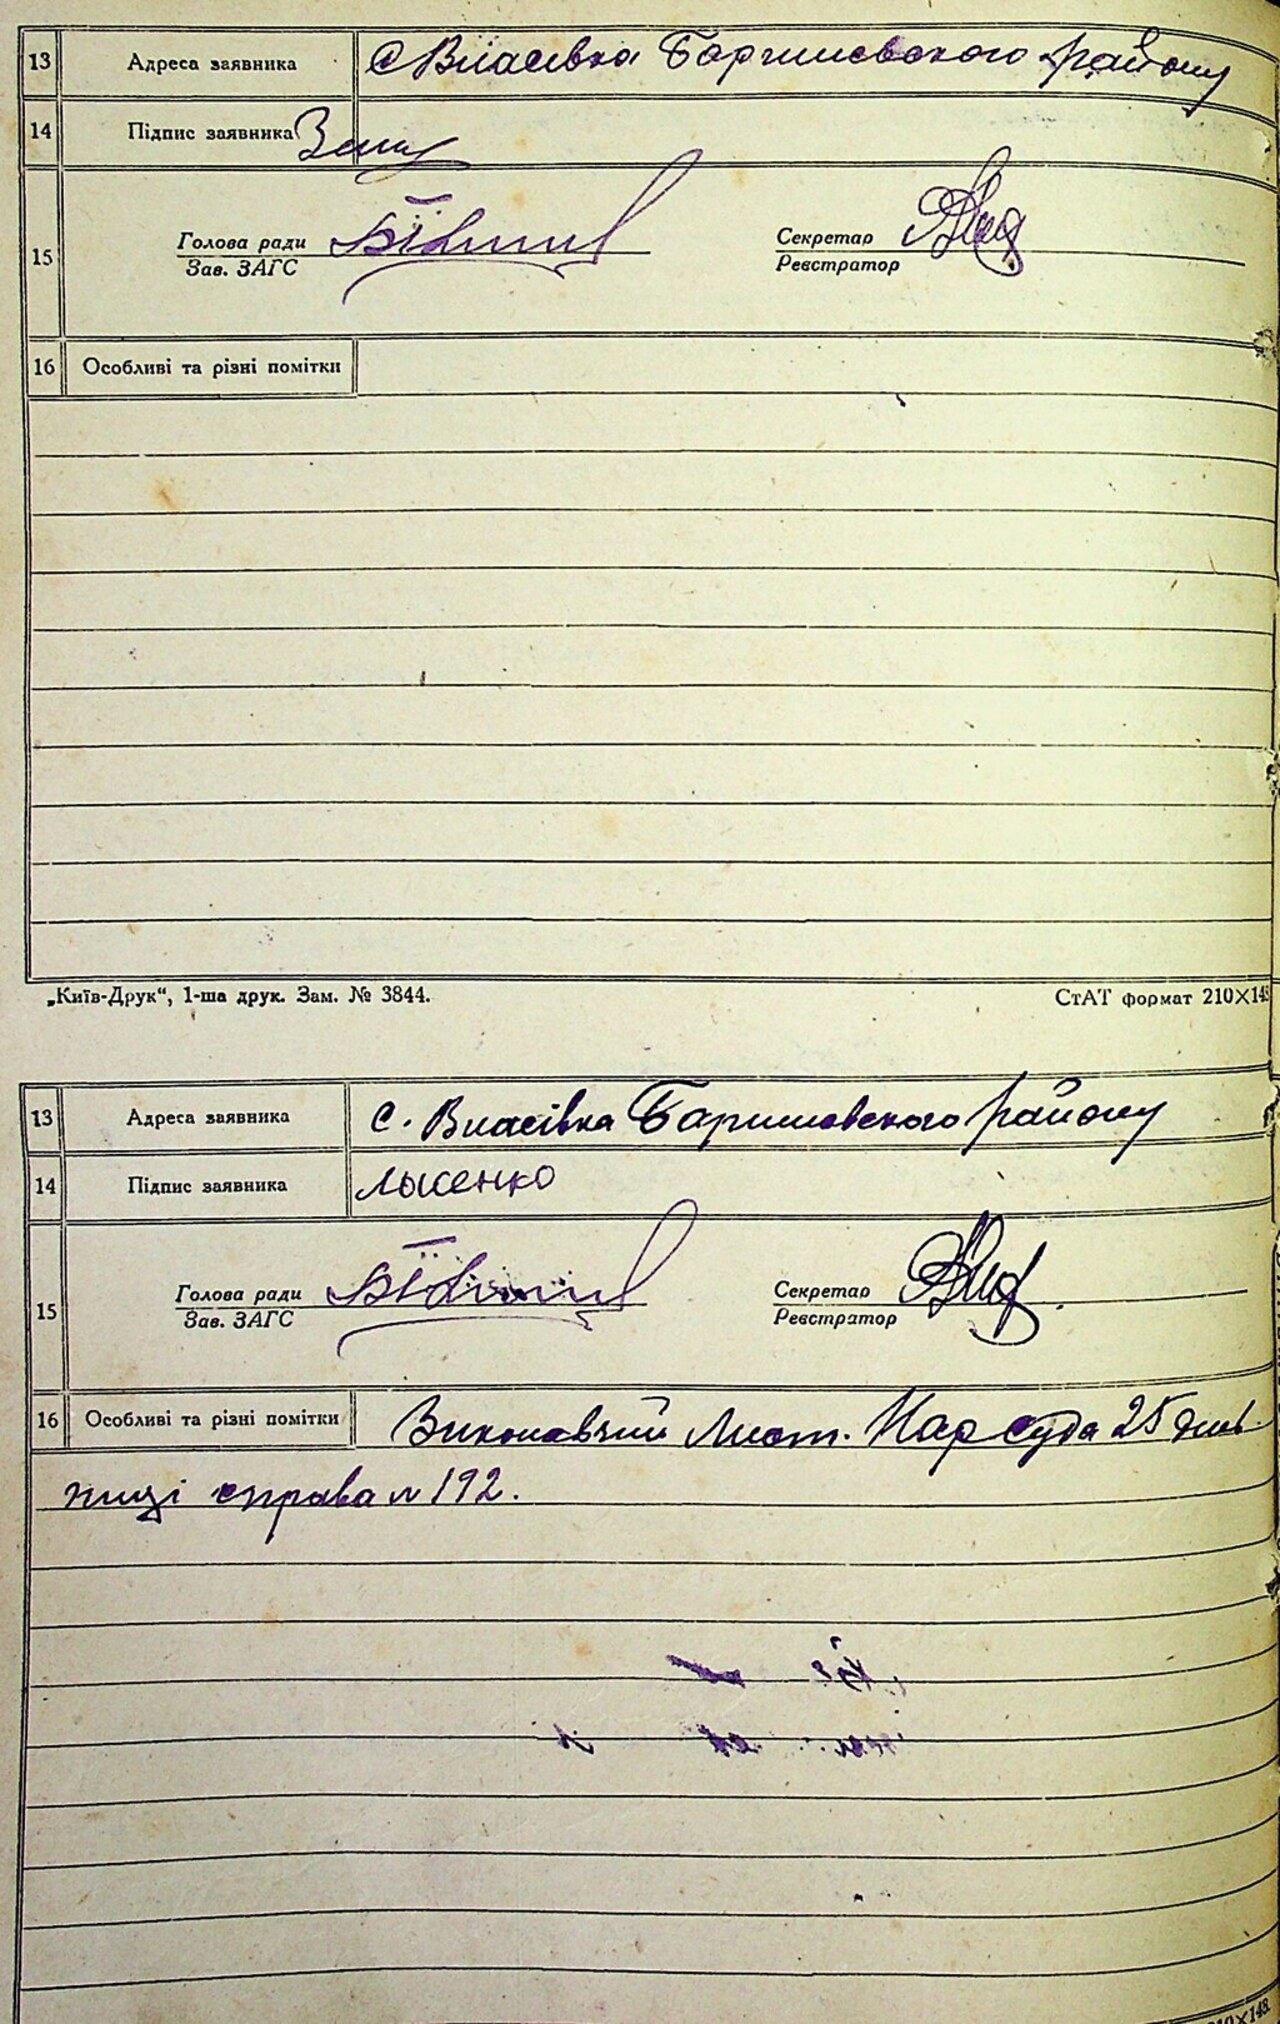 13 Адреса заявника с Власівка Баришевского району
14 Підпис заявника
15 Голова ради Секретар
Зав. ЗАГС Реєстратор
16 Особливі та різні помітки
„Київ-Друк“, 1-ша друк. Зам. № 3844. СтАТ формат 210×148
13 Адреса заявника с. Власівка Баришовского району
14 Підпис заявника Лысенко
15 Голова ради Секретар
Зав. ЗАГС Реєстратор
16 Особливі та різні помітки Виконавчий Лист. Нар суда 25 диль
ниці справа № 192.